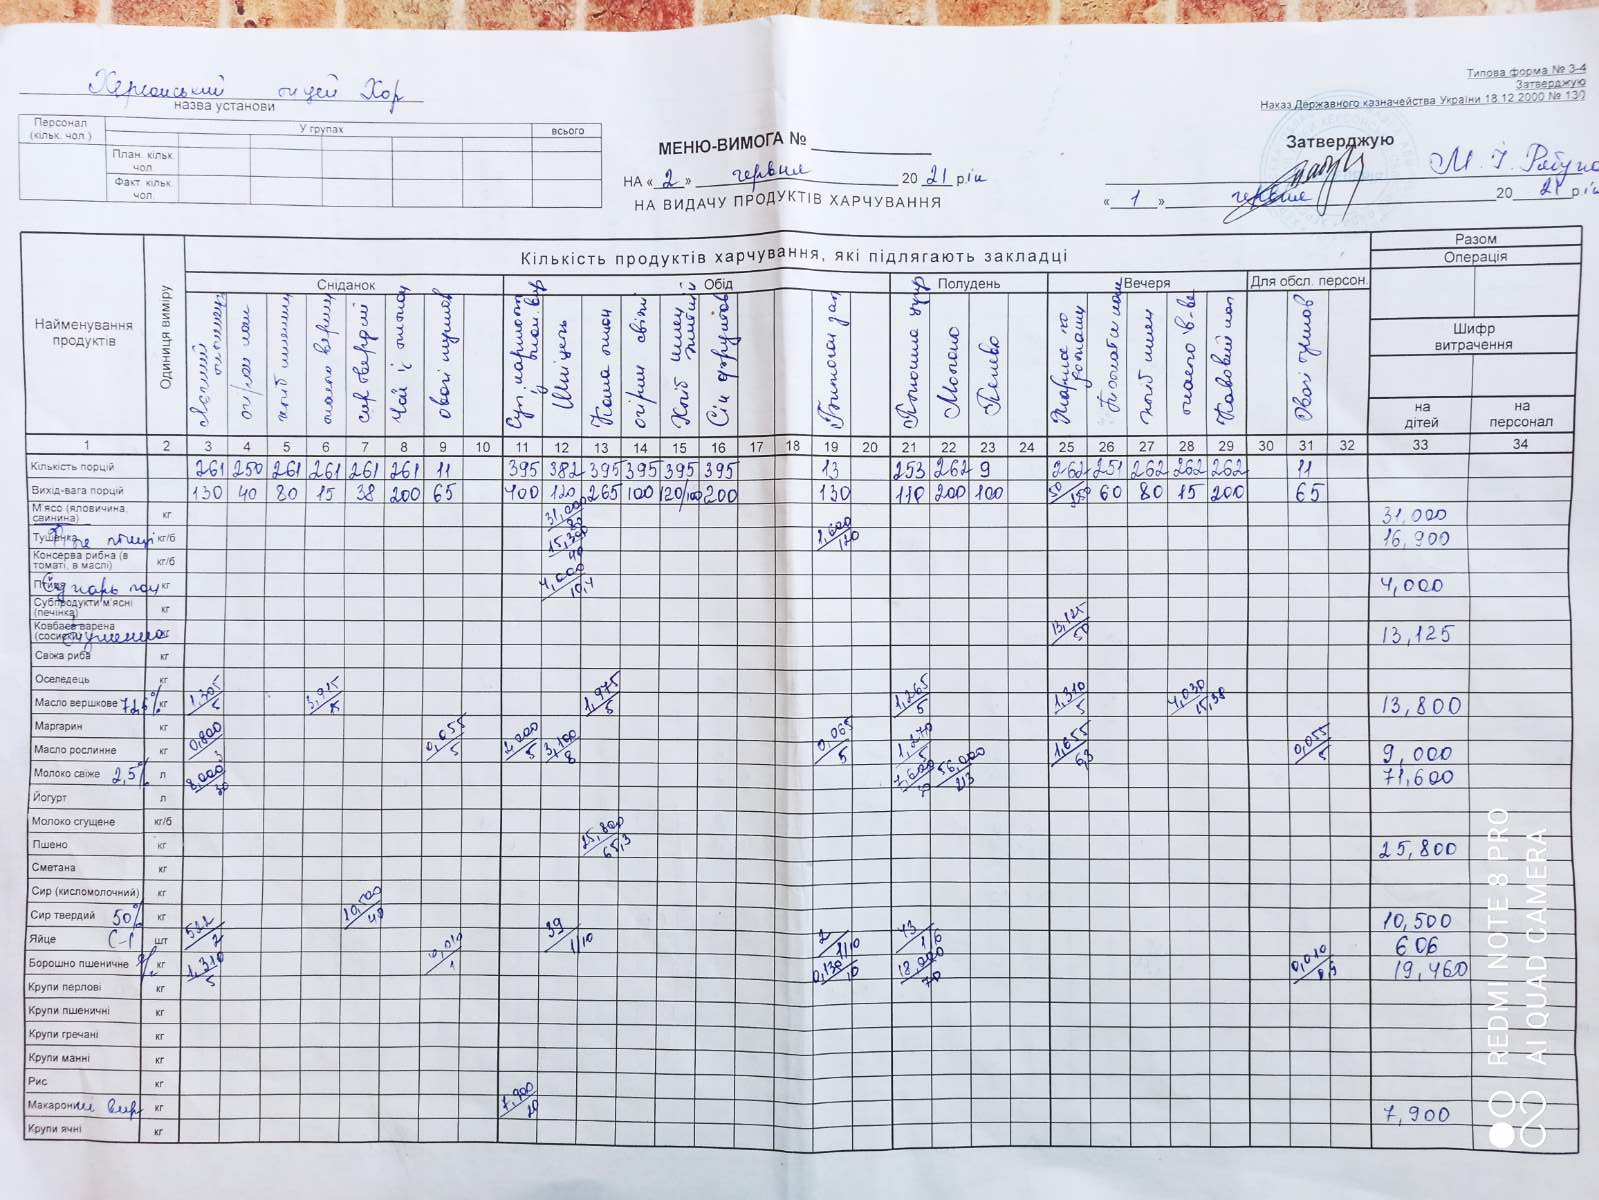 Типова форма № З-4
Затверджую
Наказ Державного казначейства України 18.12.2000 № 130
Херсонський ліцей Хор
назва установи
Персонал (кільк. чол.) У групах всього
План. кільк. чол.
Факт. кільк. чол.
МЕНЮ-ВИМОГА №
НА «2» червня 2021 рік
НА ВИДАЧУ ПРОДУКТІВ ХАРЧУВАННЯ
Затверджую
М. І.
«1» червня 2021 рік
Найменування продуктів
Одиниця виміру
Кількість продуктів харчування, які підлягають закладці
Разом
Операція
Шифр витрачення
на дітей на персонал
Сніданок Обід Полудень Вечеря Для обсл. персон.
сир твердий
Чай з
Шніцель
Каша
огірки свіжі
Хліб
Сік фруктов
Молоко
Печиво
1 2 3 4 5 6 7 8 9 10 11 12 13 14 15 16 17 18 19 20 21 22 23 24 25 26 27 28 29 30 31 32 33 34
Кількість порцій 261 250 261 261 261 261 11 395 382 395 395 395 395 13 253 262 9 262 251 262 262 262 11
Вихід-вага порцій 130 40 80 15 38 200 65 400 120 265 100 120/100 200 130 110 200 100 50/150 60 80 15 200 65
М'ясо (яловичина, свинина) кг 31,000/80 31,000
Тушенка кг/б 15,300/40 1,600/120 16,900
Консерва рибна (в томаті, в маслі) кг/б
Птиця кг 4,000/10,4 4,000
Субпродукти м'ясні (печінка) кг
Ковбаса варена (сосиски) тушенка кг 13,125/50 13,125
Свіжа риба кг
Оселедець кг
Масло вершкове 72,5% кг 1,305/5 3,915/15 1,975/5 1,265/5 1,310/5 4,030/15,38 13,800
Маргарин кг
Масло рослинне кг 0,800/3 0,055/5 2,000/5 3,100/8 0,065/5 1,270/5 1,655/6,3 0,055/5 9,000
Молоко свіже 2,5% л 8,000/30 7,600/30 56,000/213 71,600
Йогурт л
Молоко сгущене кг/б
Пшено кг 25,800/65,3 25,800
Сметана кг
Сир (кисломолочний) кг
Сир твердий 50% кг 10,500/40 10,500
Яйце С-1 шт 522/2 39 1/10 2 1/10 43 1/6 606
Борошно пшеничне кг 1,310/5 0,010/1 0,130/10 18,000/70 0,010/0,9 19,460
Крупи перлові кг
Крупи пшеничні кг
Крупи гречані кг
Крупи манні кг
Рис кг
Макаронни вир кг 7,900/20 7,900
Крупи ячні кг
REDMI NOTE 8 PRO
AI QUAD CAMERA